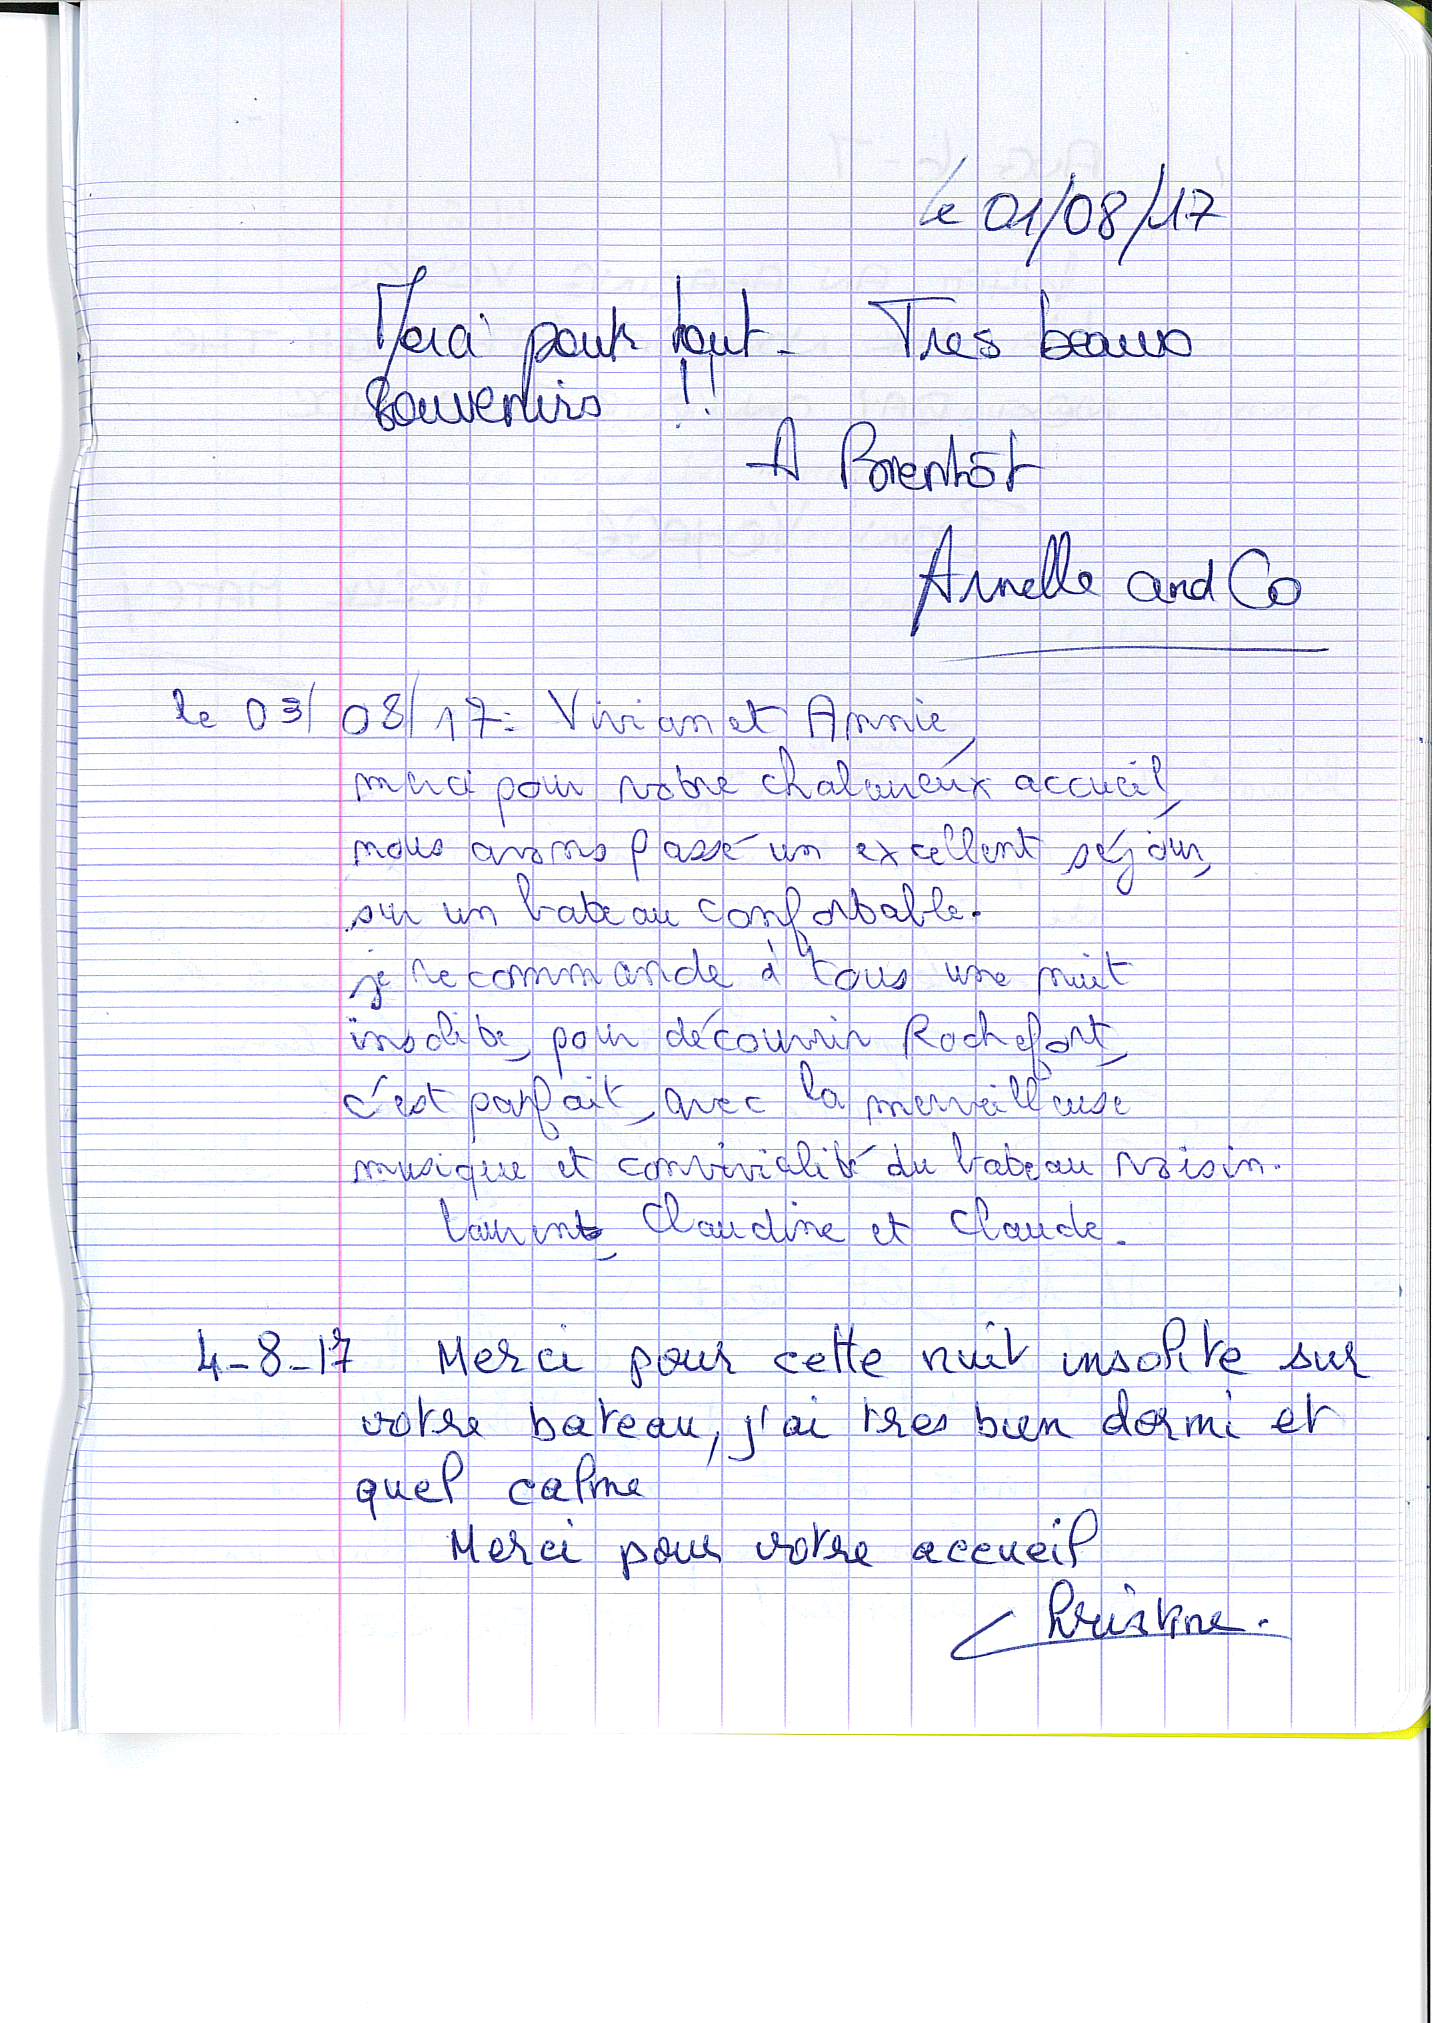 le 01/08/17
Merci pour tout. Tres beaux
souvenirs !!
A Bientôt
Armelle and Co
le 03/08/17: Vivian et Annie,
merci pour votre chaleureux accueil,
nous avons passé un excellent séjour,
sur un bateau confortable.
je recommande à tous une nuit
insolite, pour découvrir Rochefort,
c'est parfait, avec la merveilleuse
musique et convivialité du bateau voisin.
Laurent, Claudine et Claude.
4-8-17 Merci pour cette nuit insolite sur
votre bateau, j'ai tres bien dormi et
quel calme
Merci pour votre accueil
Christine.